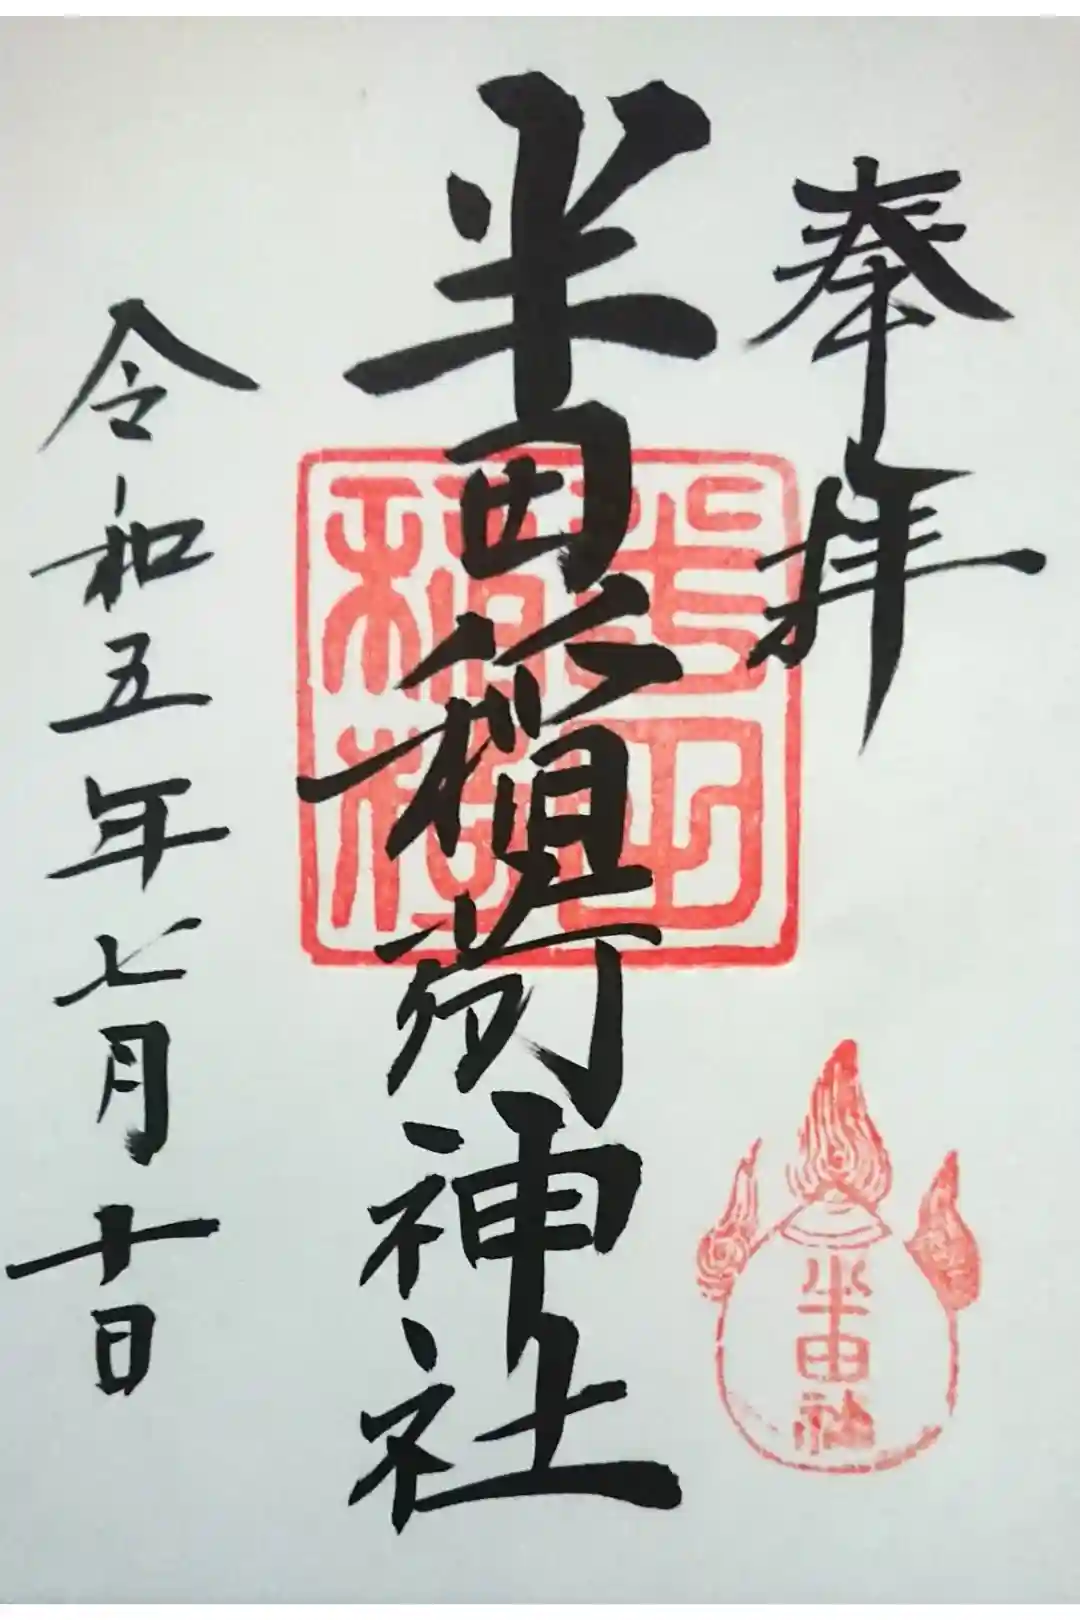 奉拝
半田稲荷神社
半田
稲荷
半田神社
令和五年七月十日